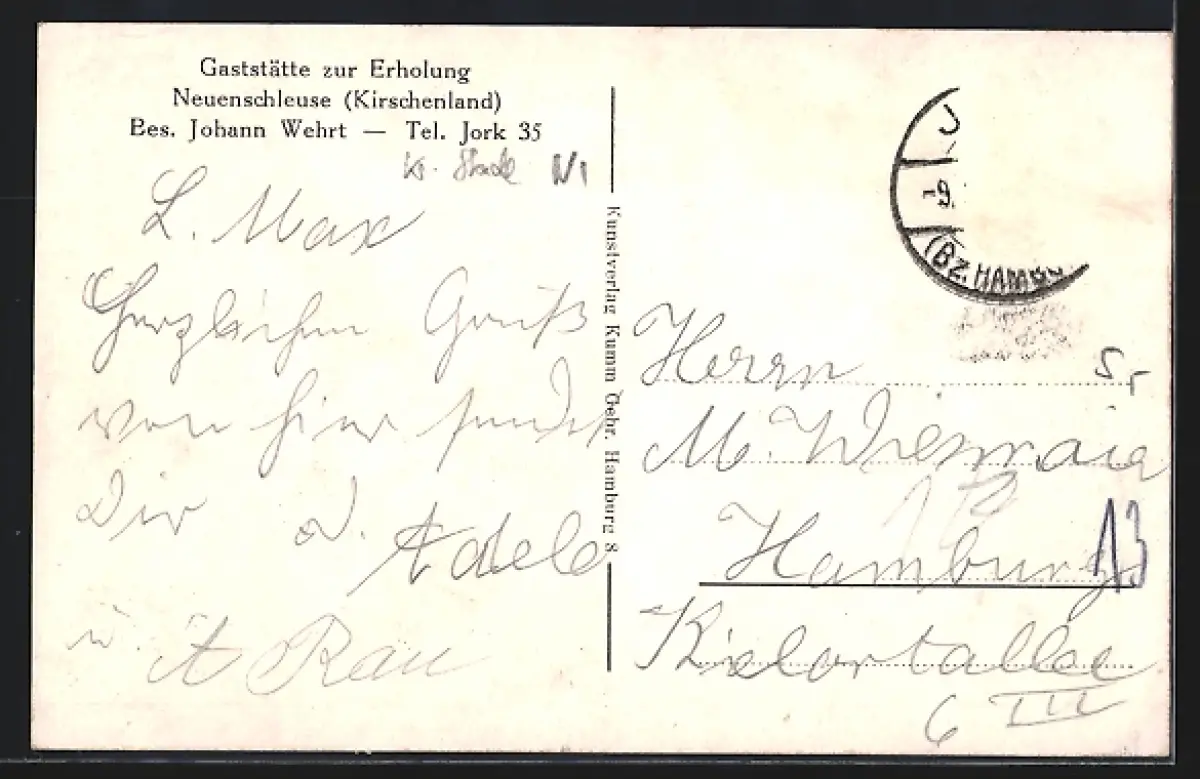 Gaststätte zur Erholung
Neuenschleuse (Kirschenland)
Bes. Johann Wehrt — Tel. Jork 35
Kr. Stade
L. Max
Herzlichen Gruß
von hier sendet
Dir d. Adele
u. A Rau
Kunstverlag Kumm Gebr. Hamburg 8
J
-9.
(BZ. HAMBU
Herrn
Sr
M.
Hamburg 13
Kielortallee
6 III